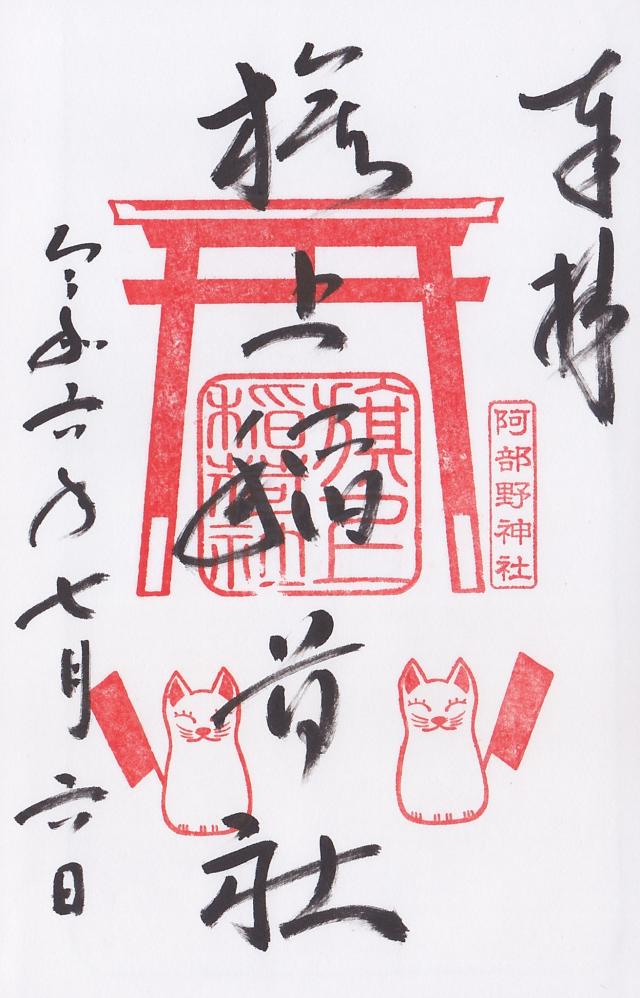 奉拝
阿部野神社
旗上稲荷社
旗上
稲荷社
令和六年七月六日